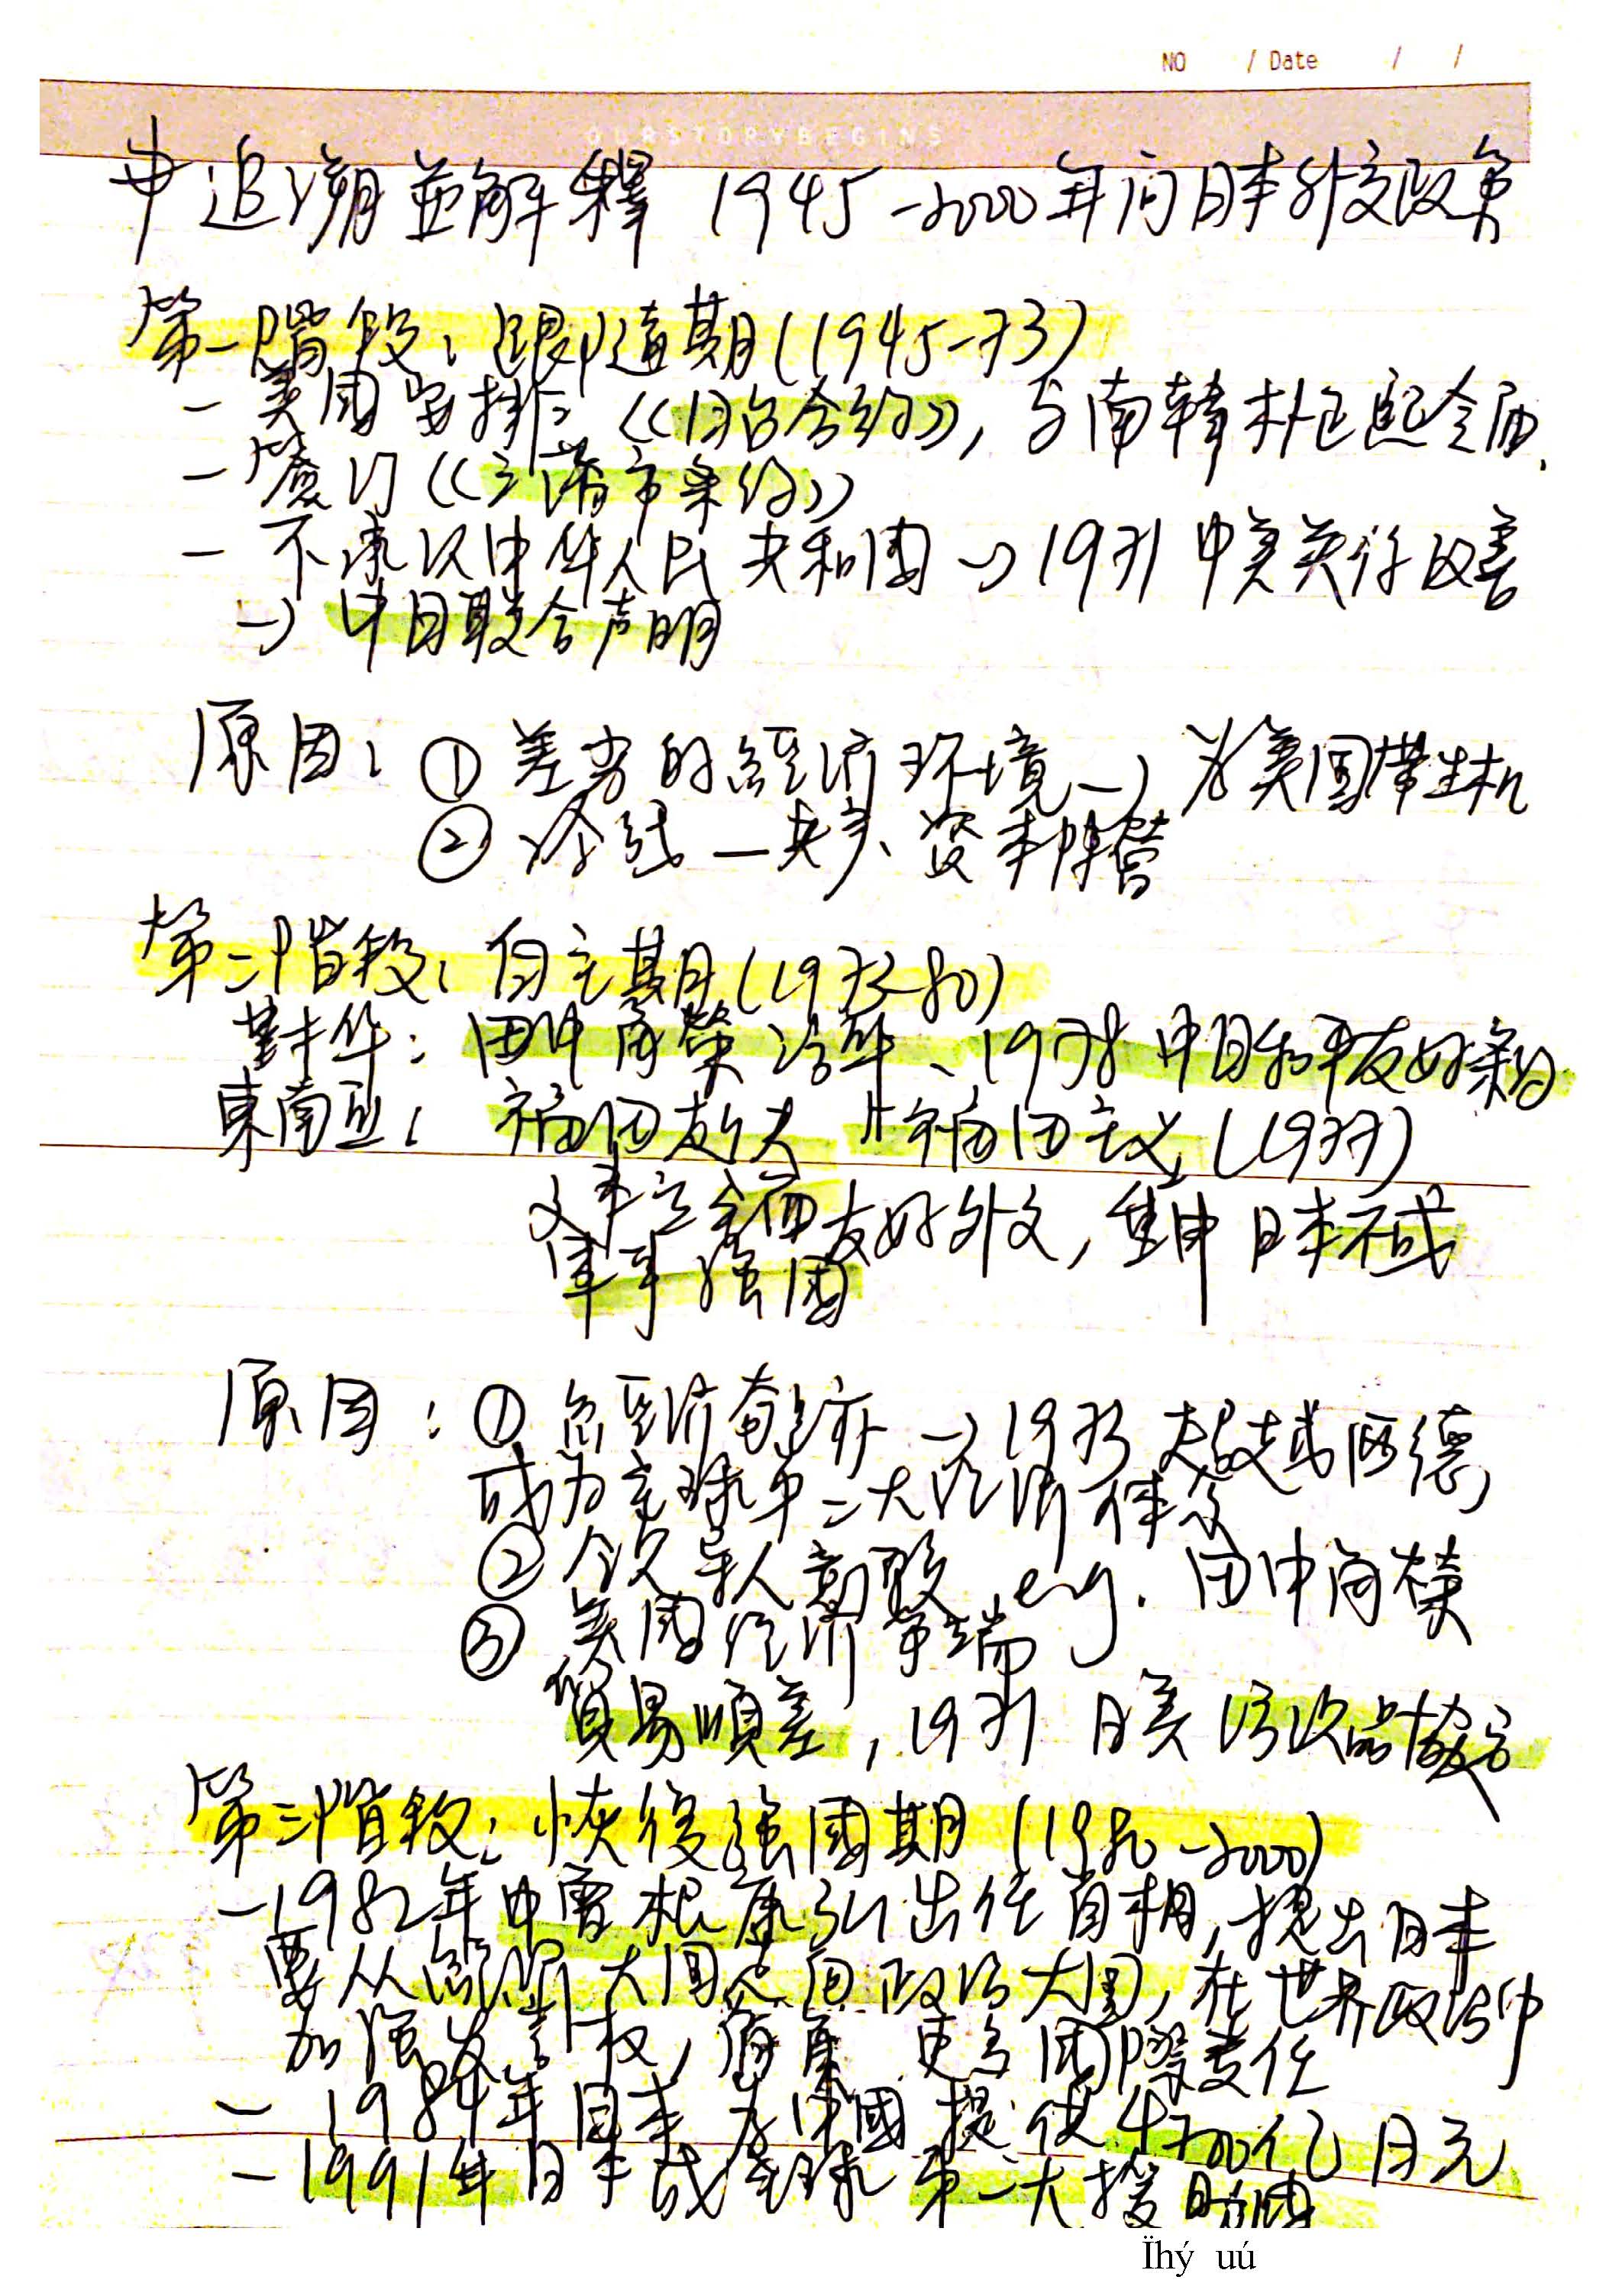 NO / Date / /
OURSTORYBEGINS
追溯並解釋 1945-2000年间日本外交政策
第一階段：跟隨期(1945-73)
- 美國安排《日台合約》，与南韓朴正熙会面、
- 簽订《三藩市条约》
- 不承认中华人民共和國→1971中美关係改善
→中日联合声明
原因：① 差劣的經济环境→为美國带
② 冷战—共产、资本陣營
第二階段：自主期(1973-80)
對华：田中角榮访华、1978中日和平友好条約
東南亞：福田赳夫 福田主义(1977)
全面友好外交，重申日本不成
軍事強國
原因：① 經济奇迹→1973 超越西德，
成为全球第二大经济体系
② 領导人 e.g. 田中角榮
③ 美國经济爭端
貿易順差，1971 日美 协定
第三階段：恢復強國期(1980-2000)
-1982年中曾根康弘出任首相，提出日本
要从經济大国走向政治大国，在世界政治中
加强发言权，肩負更多國際責任
- 1984年日本为中國提供4700亿日元
- 1991年日本成全球第一大援助國
Ïhý uú